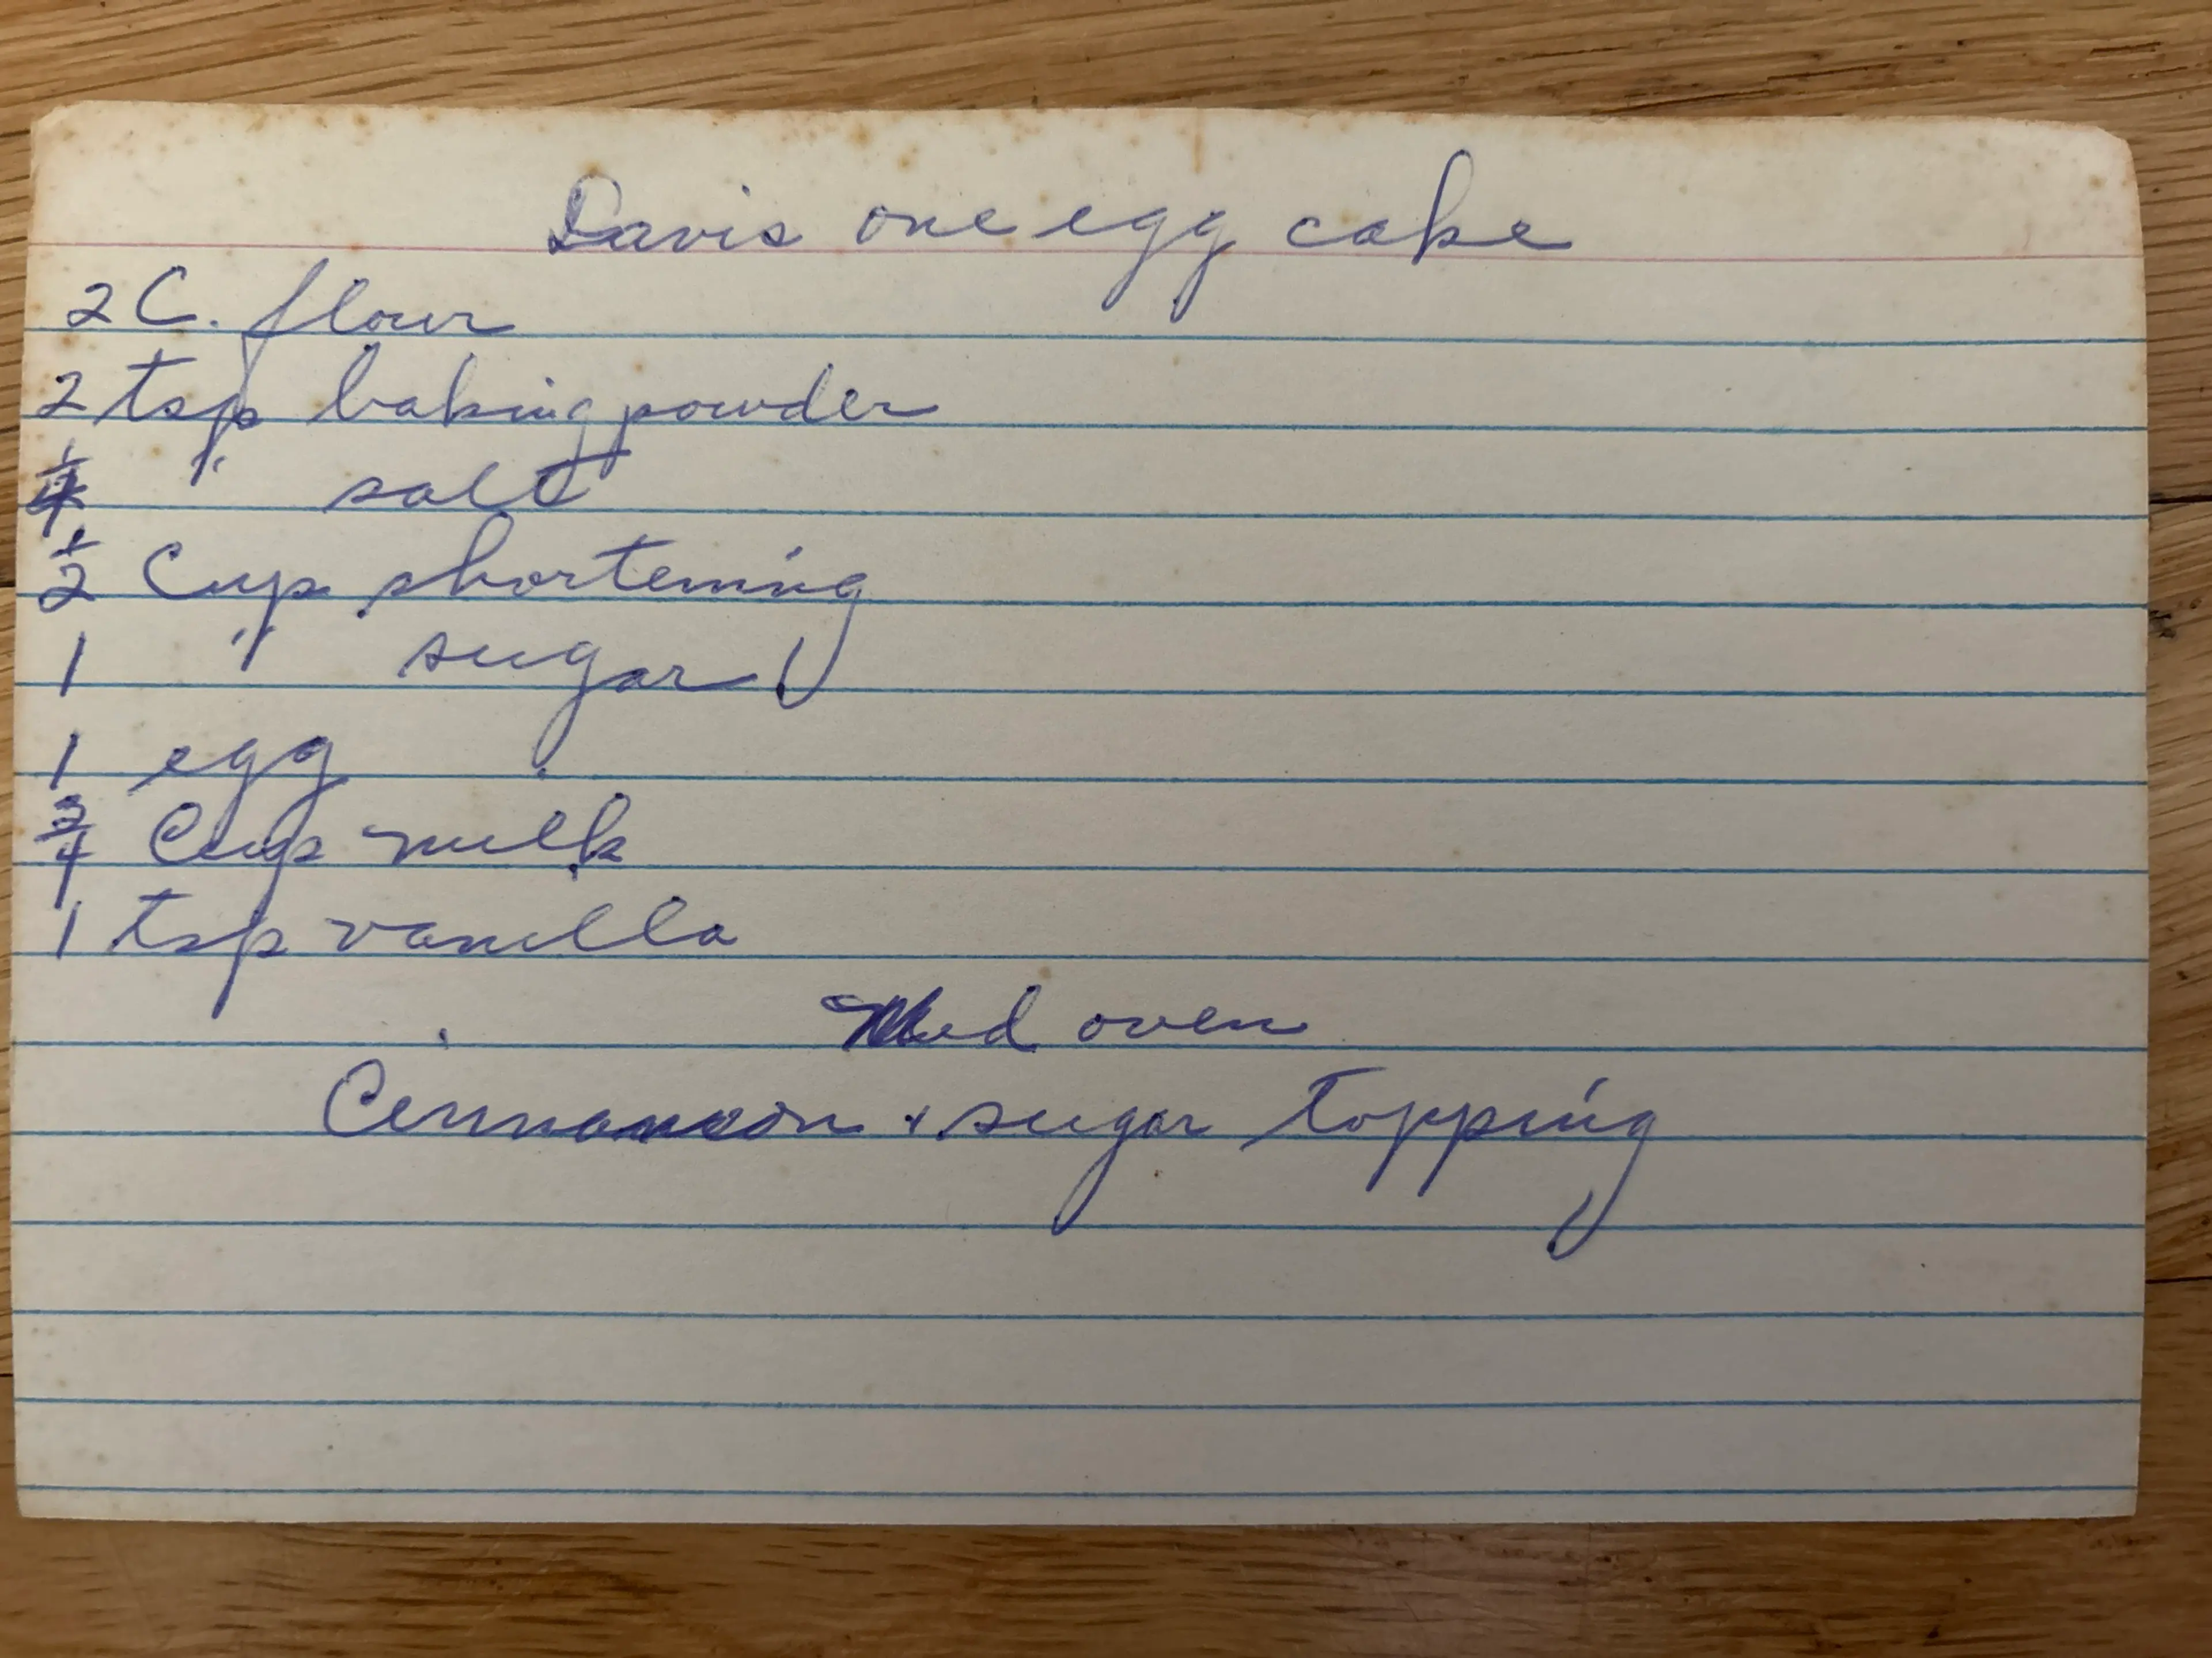 Davis one egg cake
2 C. flour
2 tsp baking powder
1/4 " salt
1/2 Cup shortening
1 " sugar
1 egg
3/4 Cup milk
1 tsp vanilla
Med oven
Cinnamon + sugar topping